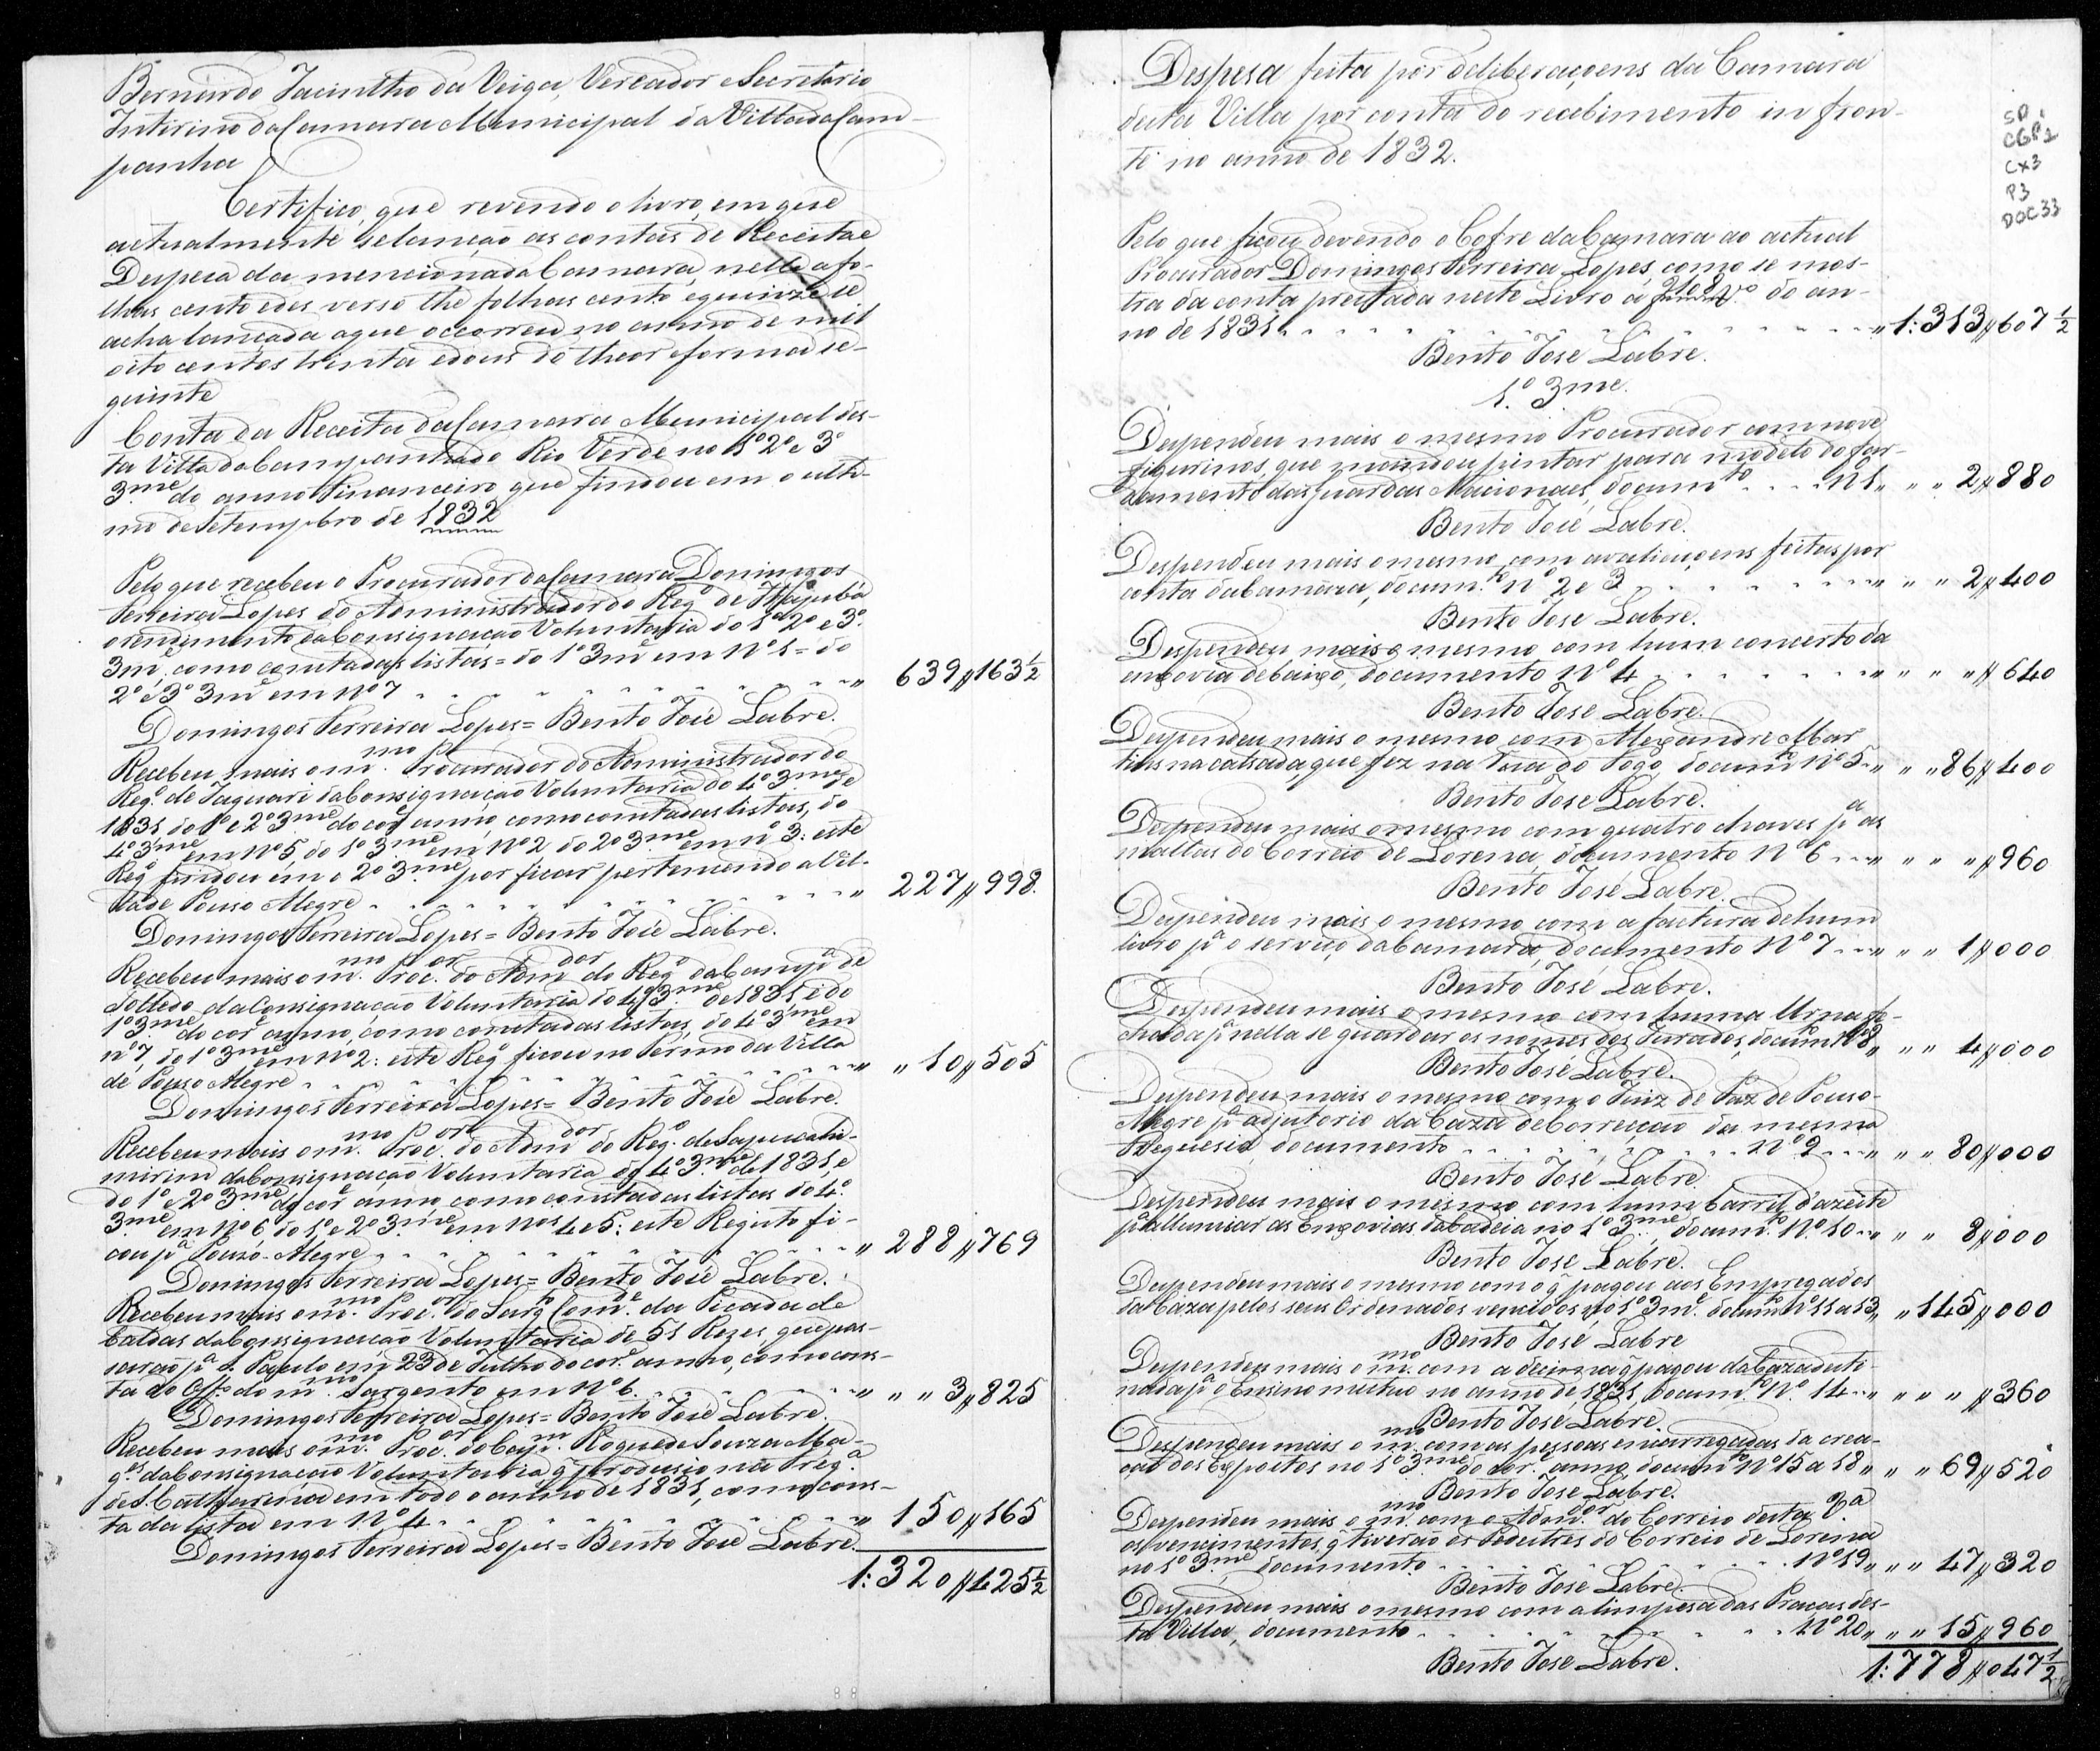 Bernardo Jacintho da Veiga, Vereador Secretario
Intirino da Camara Municipal da Villa da Cam-
panha
Certifico, que revendo o livro, em que
actualmente se lanção as contas de Receita e
Despeca da mencionada Camara, nelle a fo-
lhas cento e des verso the folhas cento e quinze se
acha lançada a que occorreu no anno de mil
oito centos trinta e dous do theor e forma se-
guinte
Conta da Receita da Camara Municipal des-
ta Villa da Campanha do Rio Verde no 1º 2º e 3º
3.me do anno Financeiro que findou em o ulti-
mo de Setembro de 1832
Pelo que recebeu o Procurador da Camara Domingos
Ferreira Lopes do Administrador do Reg.º de Itajubá
o rendimento da Consignação Voluntaria do 1º 2º e 3º
3me, como consta das listas = do 1º 3me em Nº 1 = do
2º e 3º 3me em Nº 7 " 639 $ 163 ½
Domingos Ferreira Lopes = Bento José Labre.
Recebeu mais o m.mo Procurador do Administrador do
Reg.º de Jaguari da Consignação Voluntaria do 4º 3.me de
1831 do 1º e 2º 3.me do cor.e anno como consta das listas, do
4º 3.me em Nº 5, do 1º 3.me em Nº 2 do 2º 3.me em nº 3: este
Reg.º findou em o 2º 3.me por ficar pertencendo a Vil-
la de Pouso Alegre " 227 $ 998.
Domingos Ferreira Lopes = Bento José Labre.
Recebeu mais o m.mo Proc.or do Adm.dor do Reg.º da Camp.ª de
Tolledo da Consignação Voluntaria do 4º 3.me de 1831, e do
1º 3.me do cor.e anno, como consta das listas, do 4º 3.me em
nº 7, do 1º 3.me em Nº 2: este Reg.º ficou no Termo da Villa
de Pouso Alegre " " 10 $ 505
Domingos Ferreira Lopes = Bento José Labre.
Recebeu mais o m.mo Proc.or do Adm.dor do Reg.º de Sapucahi-
mirim da Consignação Voluntaria do 4º 3.me de 1831, e
do 1º e 2º 3.me do cor.e anno, como consta das listas do 4º
3.me em Nº 6, do 1º, e 2º 3.me em Nos 4 e 5: este Registo fi-
cou p.ª Pouso-Alegre " 288 $ 769
Domingos Ferreira Lopes = Bento José Labre.
Recebeu mais o m.mo Proc.or do Sarg.to Com.de da Picada de
Caldas da Consignação Voluntaria de 51 Rezes, que pas-
sarão p.ª S. Paulo em 23 de Julho do cor.e anno, como cons-
ta do Off.º do m.mo Sargento em Nº 6. " " " 3 $ 825
Domingos Ferreira Lopes = Bento José Labre.
Recebeu mais o m.mo Proc.or do Cap.m Roque de Souza Ma-
g.es da Consignação Voluntaria, q̃ produsio na Freg.ª
de S. Catharina em todo o anno de 1831, como cons-
ta da lista em Nº 4 " 150 $ 165
Domingos Ferreira Lopes = Bento José Labre.
1: 320 $ 425 ½
Despesa feita por deliberaçoens da Camara
desta Villa por conta do recebimento in fron-
te no anno de 1832.
SP.
CGP2
CX3
P3
DOC 33
Pelo que ficou devendo o Cofre da Camara ao actual
Procurador Domingos Ferreira Lopes, como se mos-
tra da conta prestada neste Livro á Vº do an-
no de 1831 " 1: 313 $ 607 ½
Bento José Labre.
1.º 3me.
Despendeu mais o mesmo Procurador com nove
figurinos, que mandou pintar para modelo do far-
damento das Guardas Nacionaes, docum.to Nº 1 " " " 2 $ 880
Bento José Labre.
Despendeu mais o mesmo com avaliaçoens feitas por
conta da Camara, docum.to Nº 2 e 3 " " " 2 $ 400
Bento José Labre.
Despendeu mais o mesmo com hum concerto da
enxovia debaixo, documento Nº 4 " " " " $ 640
Bento José Labre.
Despendeu mais o mesmo com Alexandre Mar
tins na calsada, que fez na Rua do Fogo, docum.to Nº 5 " " " 86 $ 400
Bento José Labre.
Despendeu mais o mesmo com quatro chaves p.ª as
mallas do Correio de Lorena, documento Nº 6 " " " " $ 960
Bento José Labre.
Despendeu mais o mesmo com a factura de hum
livro p.ª o serviço da Camara, documento Nº 7 " " " 1 $ 000
Bento José Labre.
Despendeu mais o mesmo com huma Urna fe-
chada p.ª nella se guardar os nomes dos Jurados, docum.to Nº 8 " " " 4 $ 000
Bento José Labre.
Despendeu mais o mesmo com o Juiz de Paz de Pouso-
Alegre p.ª adjutorio da Caza de Correcção da mesma
Freguesia, documento Nº 9 " " " 80 $ 000
Bento José Labre.
Despendeu mais o mesmo com hum barril d'azeite
p.ª allumiar as Enxovias da Cadeia no 1º 3.me, docum.to Nº 10 " " " 8 $ 000
Bento José Labre.
Despendeu mais o mesmo com o q̃ pagou aos Empregados
da Caza pelos seus Ordenados vencidos no 1º 3me. docum.to Nº 11 a 13 " " 145 $ 000
Bento José Labre
Despendeu mais o m.mo com a decima q̃ pagou da Caza desti-
nada p.ª o Ensino mutuo no anno de 1831, docum.to Nº 14 " " " " $ 360
Bento José Labre.
Despendeu mais o m.mo com as pessoas encarregadas da crea-
ção dos Expostos no 1º 3.me do cor.e anno, docum.to Nº 15 a 18 " " " 69 $ 520
Bento José Labre.
Despendeu mais o m.mo com o Adm.dor do Correio desta V.ª
os vencimentos, q̃ tiverão os Pedestres do Correio de Lorena
no 1º 3.me, documento Nº 19 " " " 47 $ 320
Bento José Labre.
Despendeu mais o mesmo com a limpesa das Praças des-
ta Villa, documento Nº 20 " " " 15 $ 960
Bento José Labre.
1: 778 $ 047 ½